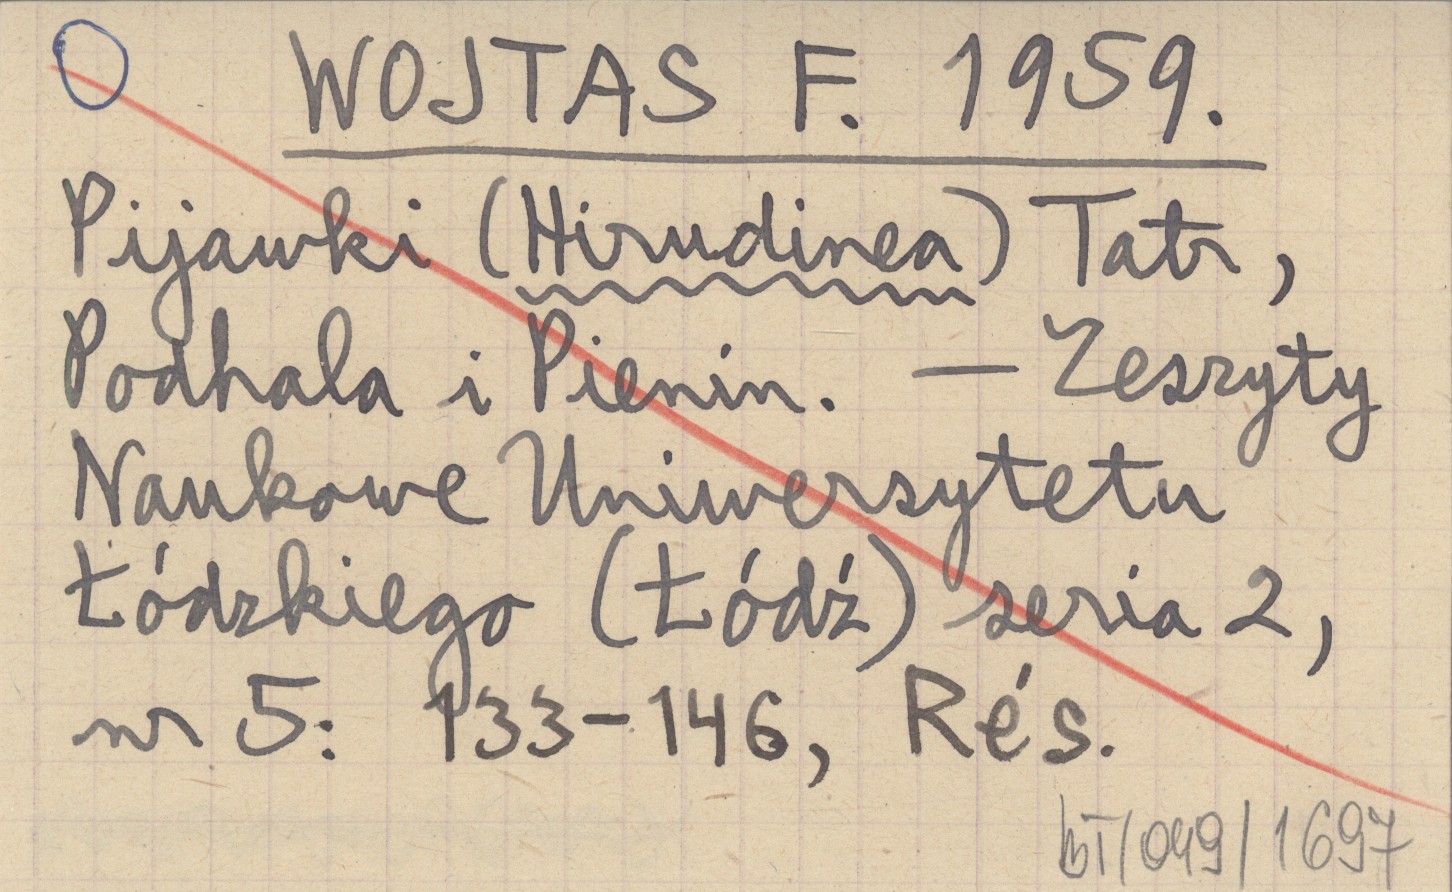 WOJTAS F. 1959.
Pijawki (Hirudinea) Tatr,
Podhala i Pienin. — Zeszyty
Naukowe Uniwersytetu
Łódzkiego (Łódź) seria 2,
nr 5: 133-146, Rés.
bT/049/1697